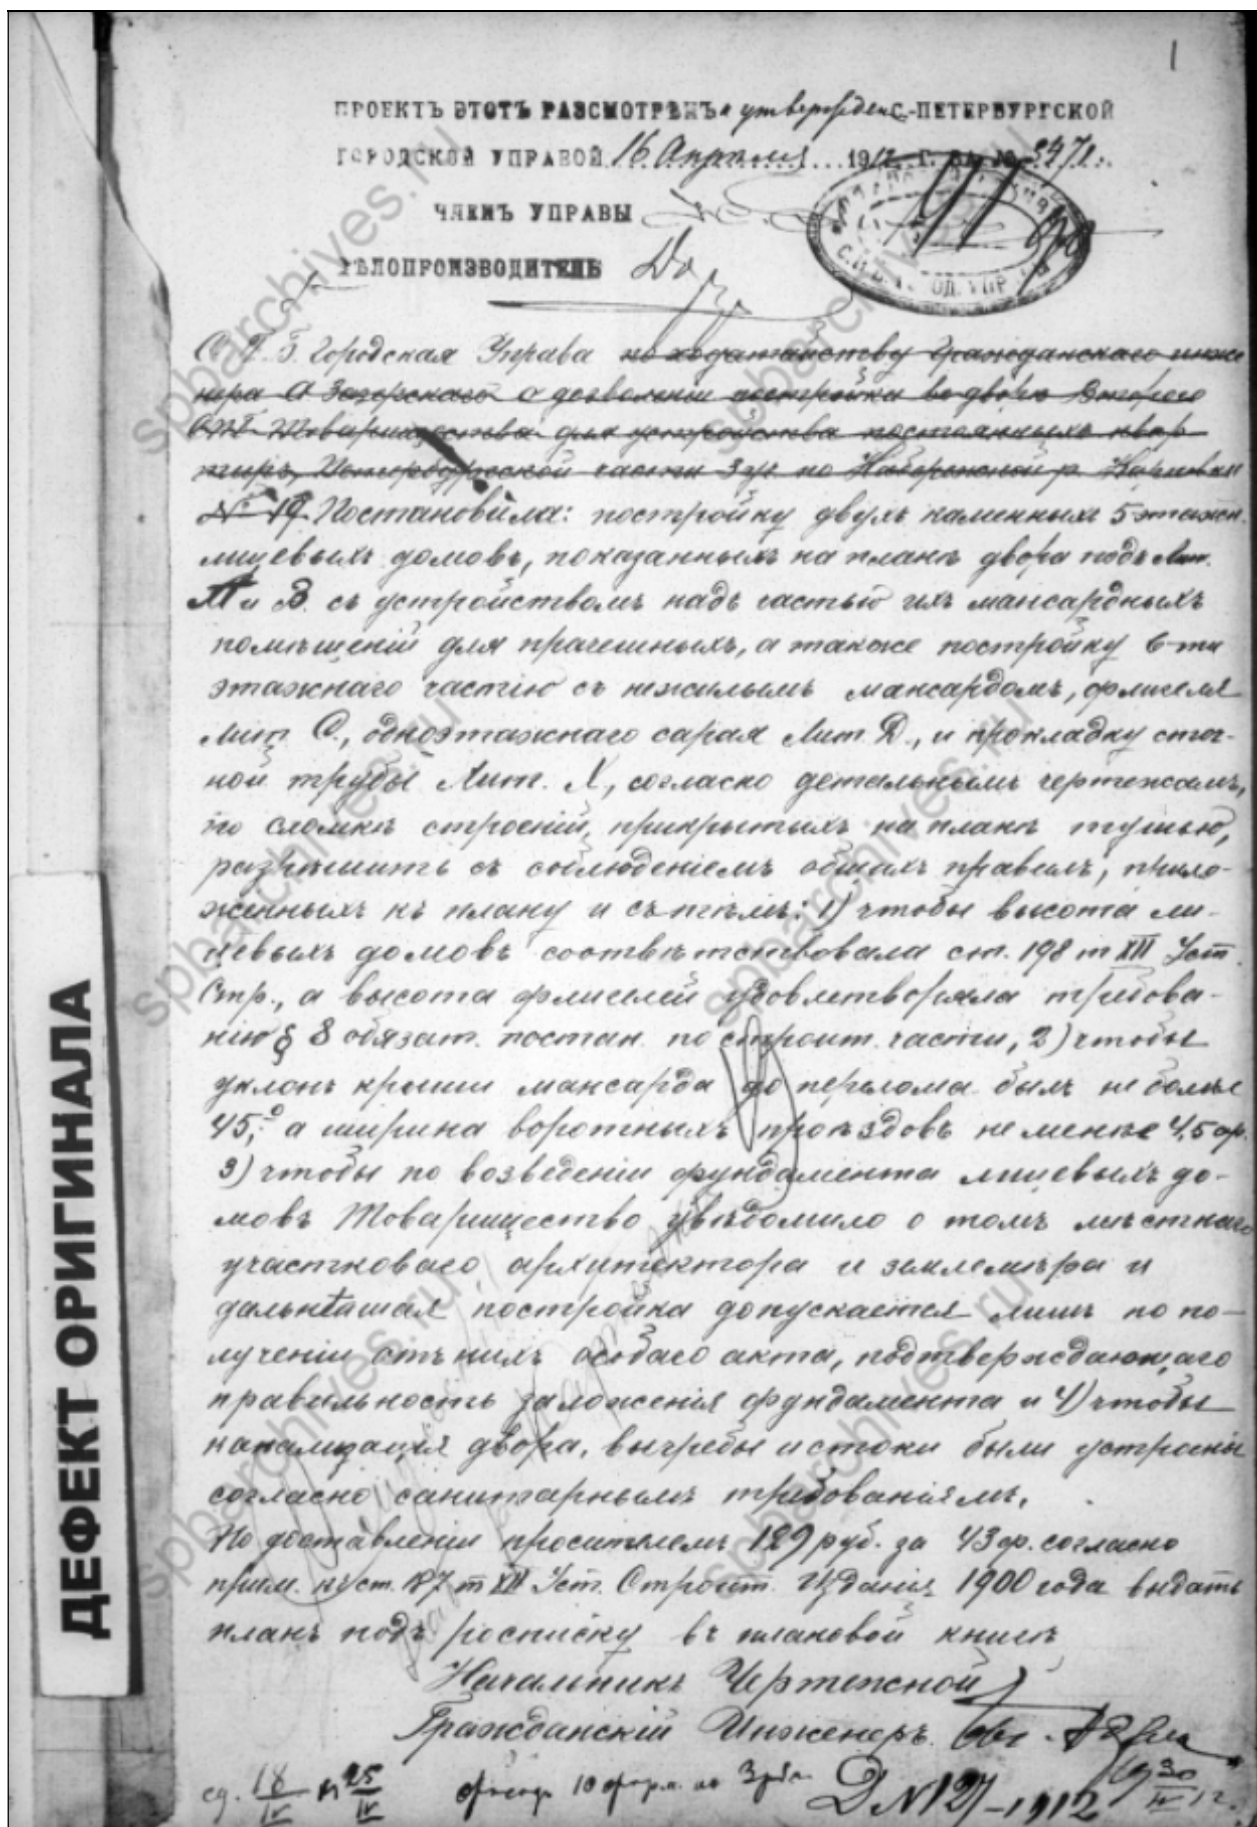 1
ПРОЕКТЪ ЭТОТЪ РАЗСМОТРѢНЪ и утвержденъ С.-ПЕТЕРБУРГСКОЙ
ГОРОДСКОЙ УПРАВОЙ 16 Апреля 1912 Г. ЗА №
ЧЛЕНЪ УПРАВЫ
ДѢЛОПРОИЗВОДИТЕЛЬ
С. П. Б. Городская Управа по ходатайству Гражданскаго инже
нера А Загорскаго о дозволеніи постройки во дворѣ Второго
СПб Товарищества для устройства постоянныхъ квар
тиръ, Петербургской части 3 уч. по Набережной р Карповки
№ 19 Постановила: постройку двухъ каменныхъ 5 этажн.
лицевыхъ домовъ, показанныхъ на планѣ двора подъ Лит.
А и В. съ устройствомъ надъ частью ихъ мансардныхъ
помѣщеній для прачешныхъ, а также постройку 6-ти
этажнаго частію съ нежилымъ мансардомъ, флигеля
Лит. С., одноэтажнаго сарая Лит. D., и прокладку сточ-
ной трубы Лит. X, согласно детальнымъ чертежамъ,
по сломкѣ строеній, прикрытыхъ на планѣ тушью,
разрѣшить съ соблюденіемъ общихъ правилъ, прило-
женныхъ къ плану и съ тѣмъ: 1) чтобы высота ли-
цевыхъ домовъ соотвѣтствовала ст. 198 т XII Уст.
Стр., а высота флигелей удовлетворяла требова-
нію § 8 обязат. постан. по строит. части, 2) чтобы
уклонъ крыши мансарда до перелома былъ не болѣе
45,° а ширина воротныхъ проѣздовъ не менѣе 4,5 ар.
3) чтобы по возведеніи фундамента лицевыхъ до-
мовъ Товарищество увѣдомило о томъ мѣстнаго
участковаго архитектора и землемѣра и
дальнѣйшая постройка допускается лишь по по-
лученіи отъ нихъ особаго акта, подтверждающаго
правильность заложенія фундамента и 4) чтобы
канализація двора, выгребы и стоки были устроены
согласно санитарнымъ требованіямъ.
По доставленіи просителемъ 129 руб. за 43 ф. согласно
прим. къ ст. 187 т XII Уст. Строит. Изданія 1900 года выдать
планъ подъ росписку въ плановой книгѣ
Начальникъ Чертежной
Гражданскій Инженеръ
сд. 18/IV 25/IV
Д №127-1912
30/IV 12 г.
ДЕФЕКТ ОРИГИНАЛА
spbarchives.ru
spbarchives.ru
spbarchives.ru
spbarchives.ru
spbarchives.ru
spbarchives.ru